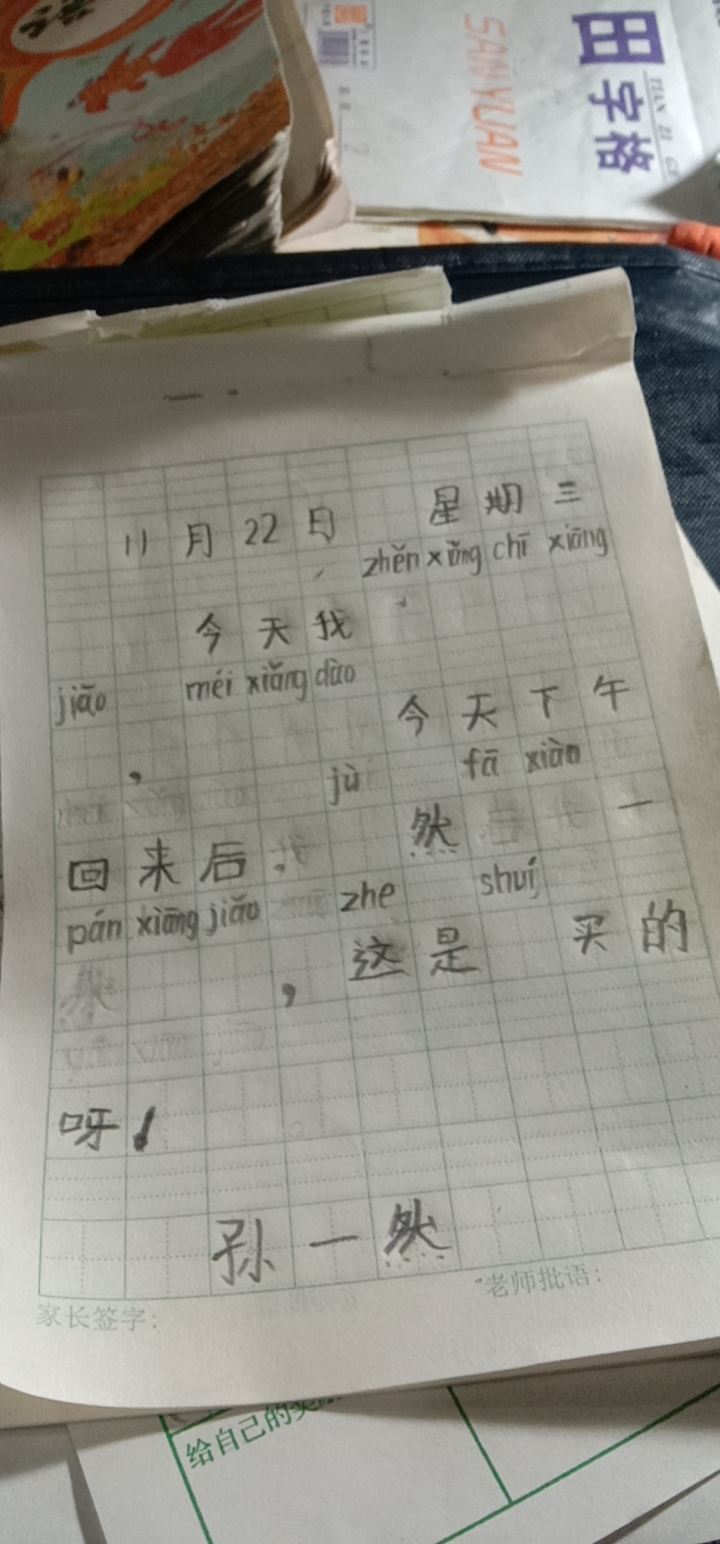 田字格
TIAN ZI GE
SAN YUAN
一.
11月22日 星期三
zhěn xiǎng chī xiāng
今天我
jiāo méi xiǎng dào
， 今天下午
jù fā xiàn
回来后， 然 一
pán xiāng jiāo zhe shuí
，这是 买的
呀！
孙一然
家长签字：
老师批语：
给自己的奖